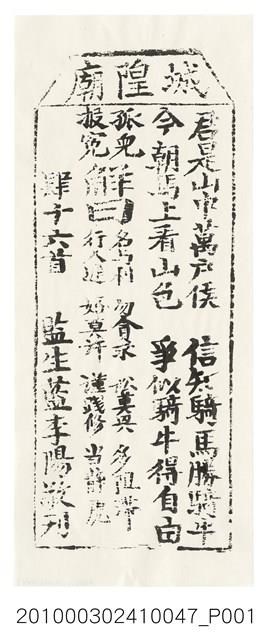 城隍廟
君是山中萬戶侯　信知騎馬勝騎牛
今朝馬上看山色　爭似騎牛得自由
孤兔投冤
解曰
名與利　勿貪求　訟莫興　多阻滯
行人遲　婚莫許　謹踐修　當靜處
肆十六首　監生藍李陽敬刊
201000302410047_P001